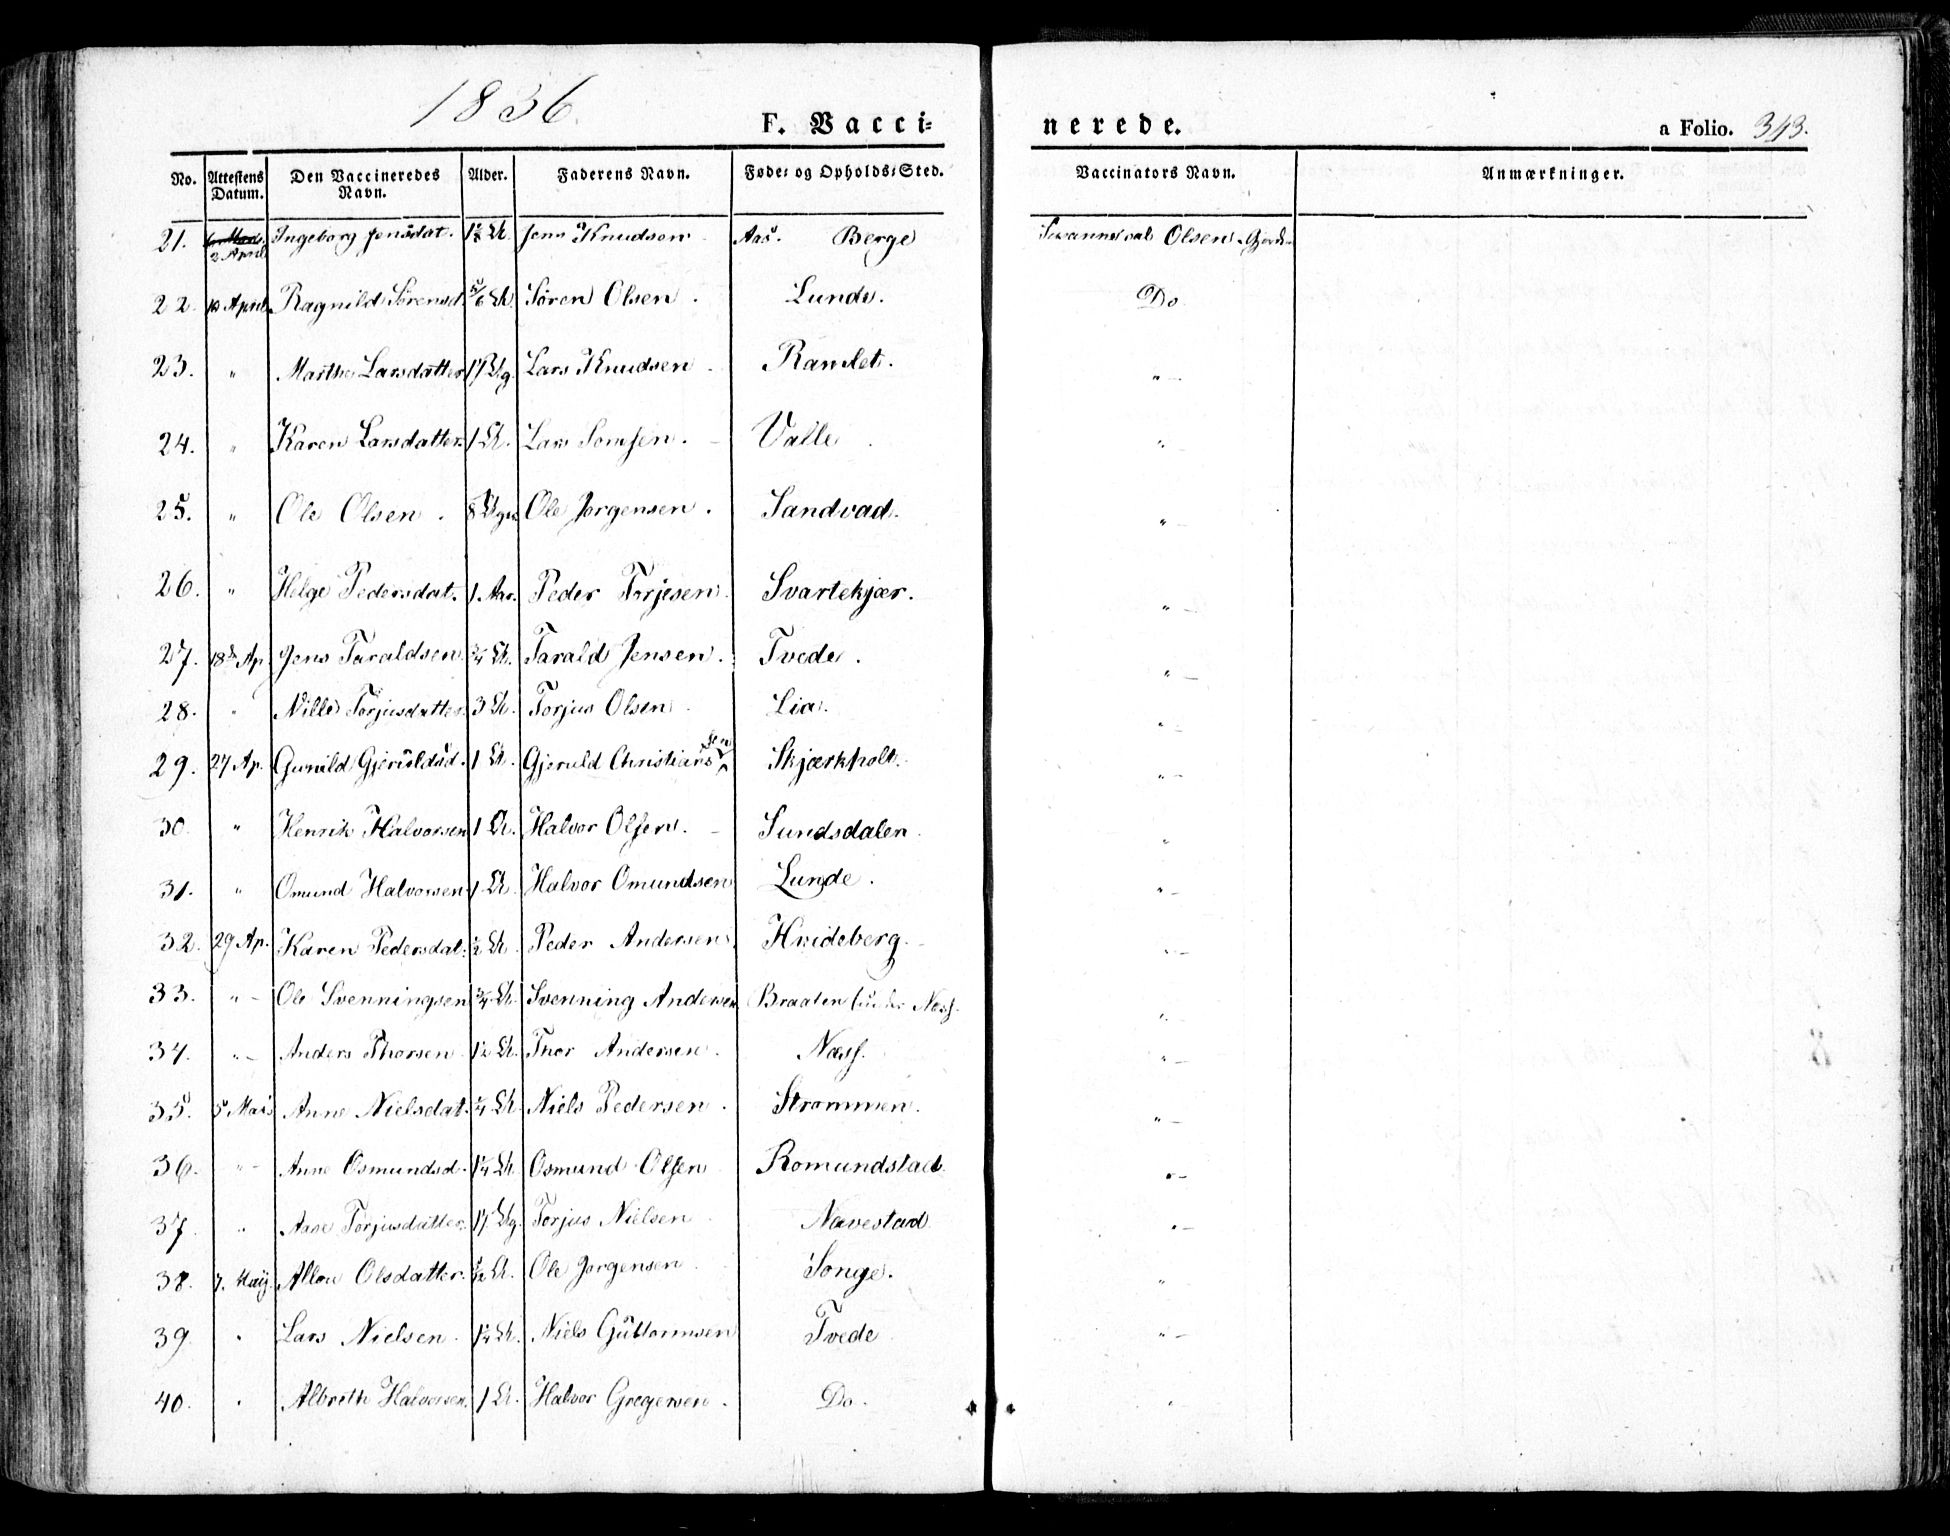 1836.
F. Vacci= nerede. a Folio. 343.
No. Attestens Datum. Den Vaccineredes Navn. Alder. Faderens Navn. Føde- og Opholds-Sted. Vaccinators Navn. Anmærkninger.
21. 2 April Ingeborg Jensdat. Jens Knudsen Aas. Berge Olsen
22. April Ragnild Sørensd. 5/6 Søren Olsen. Lunde. Do
23. " Marthe Larsdatter Lars Knudsen Ramlet. "
24. " Karen Larsdatter 1 Lars Valle "
25. " Ole Olsen. 8 Ole Jørgensen. Sandvad. "
26. " Helge Pedersdat. 1. Aar. Peder Torjesen. Svartekjær. "
27. 18 Ap. Jens Taraldsen 3/4 Tarald Jensen. Tvede. "
28. " Nille Torjusdatter 3 Torjus Olsen Lia. "
29. 27 Ap. Gunild Gjeruldsd. 1 Gjeruld Christianssen Skjærkholt. "
30. " Henrik Halvorsen 1 Halvor Olsen. Sundsdalen "
31. " Omund Halvorsen 1 Halvor Omundsen Lunde. "
32. 29 Ap. Karen Pedersdat. 1/2 Peder Andersen Hvideberg. "
33. " Ole Svenningsen 3/4 Svenning Andersen Braaten under Næss.
34. " Anders Thorsen 1 1/2 Thor Andersen. Næss. "
35. 5 Mai Anne Nielsdat. Niels Pedersen. Strømmen. "
36. " Anne Osmundsd. 1 1/4 Osmund Olsen Romundstad. "
37. " Aase Torjusdatter Torjus Nielsen Nævestad. "
38. 7. May. Olsdatter. Ole Jørgensen Songe. "
39. " Lars Nielsen. 1 1/4 Niels Guttormsen Tvede "
40. " Albreth Halvorsen 1 Halvor Gregersen. Do. "